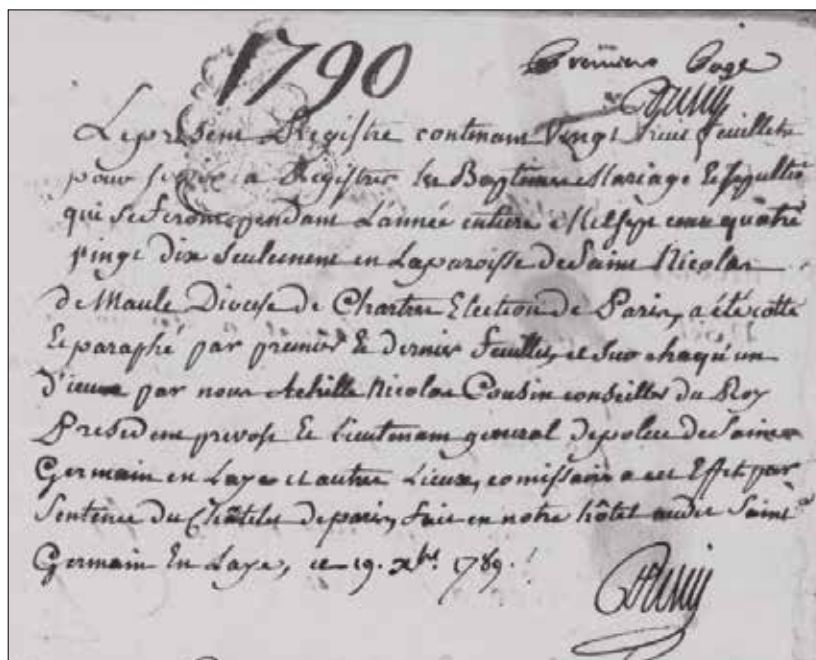 1790
Premiere Page
Cousin
Le present Registre contenant Vingt feuillets
pour servir a Registrer les Baptemes Mariage et sepulture
qui se feront pendant L'année entiere Mil sept cent quatre
vingt dix seulement en La paroisse de Saint Nicolas
de Maule Diocese de Chartre Election de Paris, a été cotté
et paraphé par premier et dernier feuillet, et sur chaqu'un
d'iceux par nous Achille Nicolas Cousin conseiller du Roy
President prevost et Lieutenant general de police de Saint
Germain en Laye et autre Lieux, comissaire a cet Effet par
Sentence du Châtelet de paris, fait en notre hôtel audit Saint
Germain En Laye, ce 19. xbre 1789.
Cousin